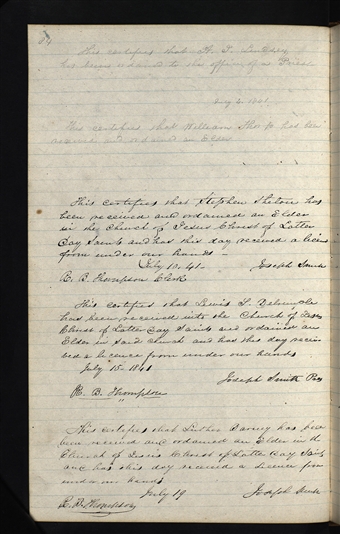 This certifies that
has been ordained to the office of a Priest
1841
This certifies that William has been
received and ordained an Elder
This certifies that Stephen Shelton has
been received and ordained an Elder
in the Church of Jesus Christ of Latter
Day Saints and has this day received a licence
from under our hands -
July 10. 41. Joseph Smith
R. B. Thompson Clerk
This certifies that Lewis
has been received into the Church of Jesus
Christ of Latter Day Saints and ordained an
Elder in said Church and has this day recei
ved a licence from under our hands
July 15. 1841
Joseph Smith Pres
R. B. Thompson
This certifies that has been
received and ordained an Elder in the
Church of Jesus Christ of Latter Day Saints
and has this day received a Licence from
under our hands
July 19 Joseph Smith
R. B. Thompson